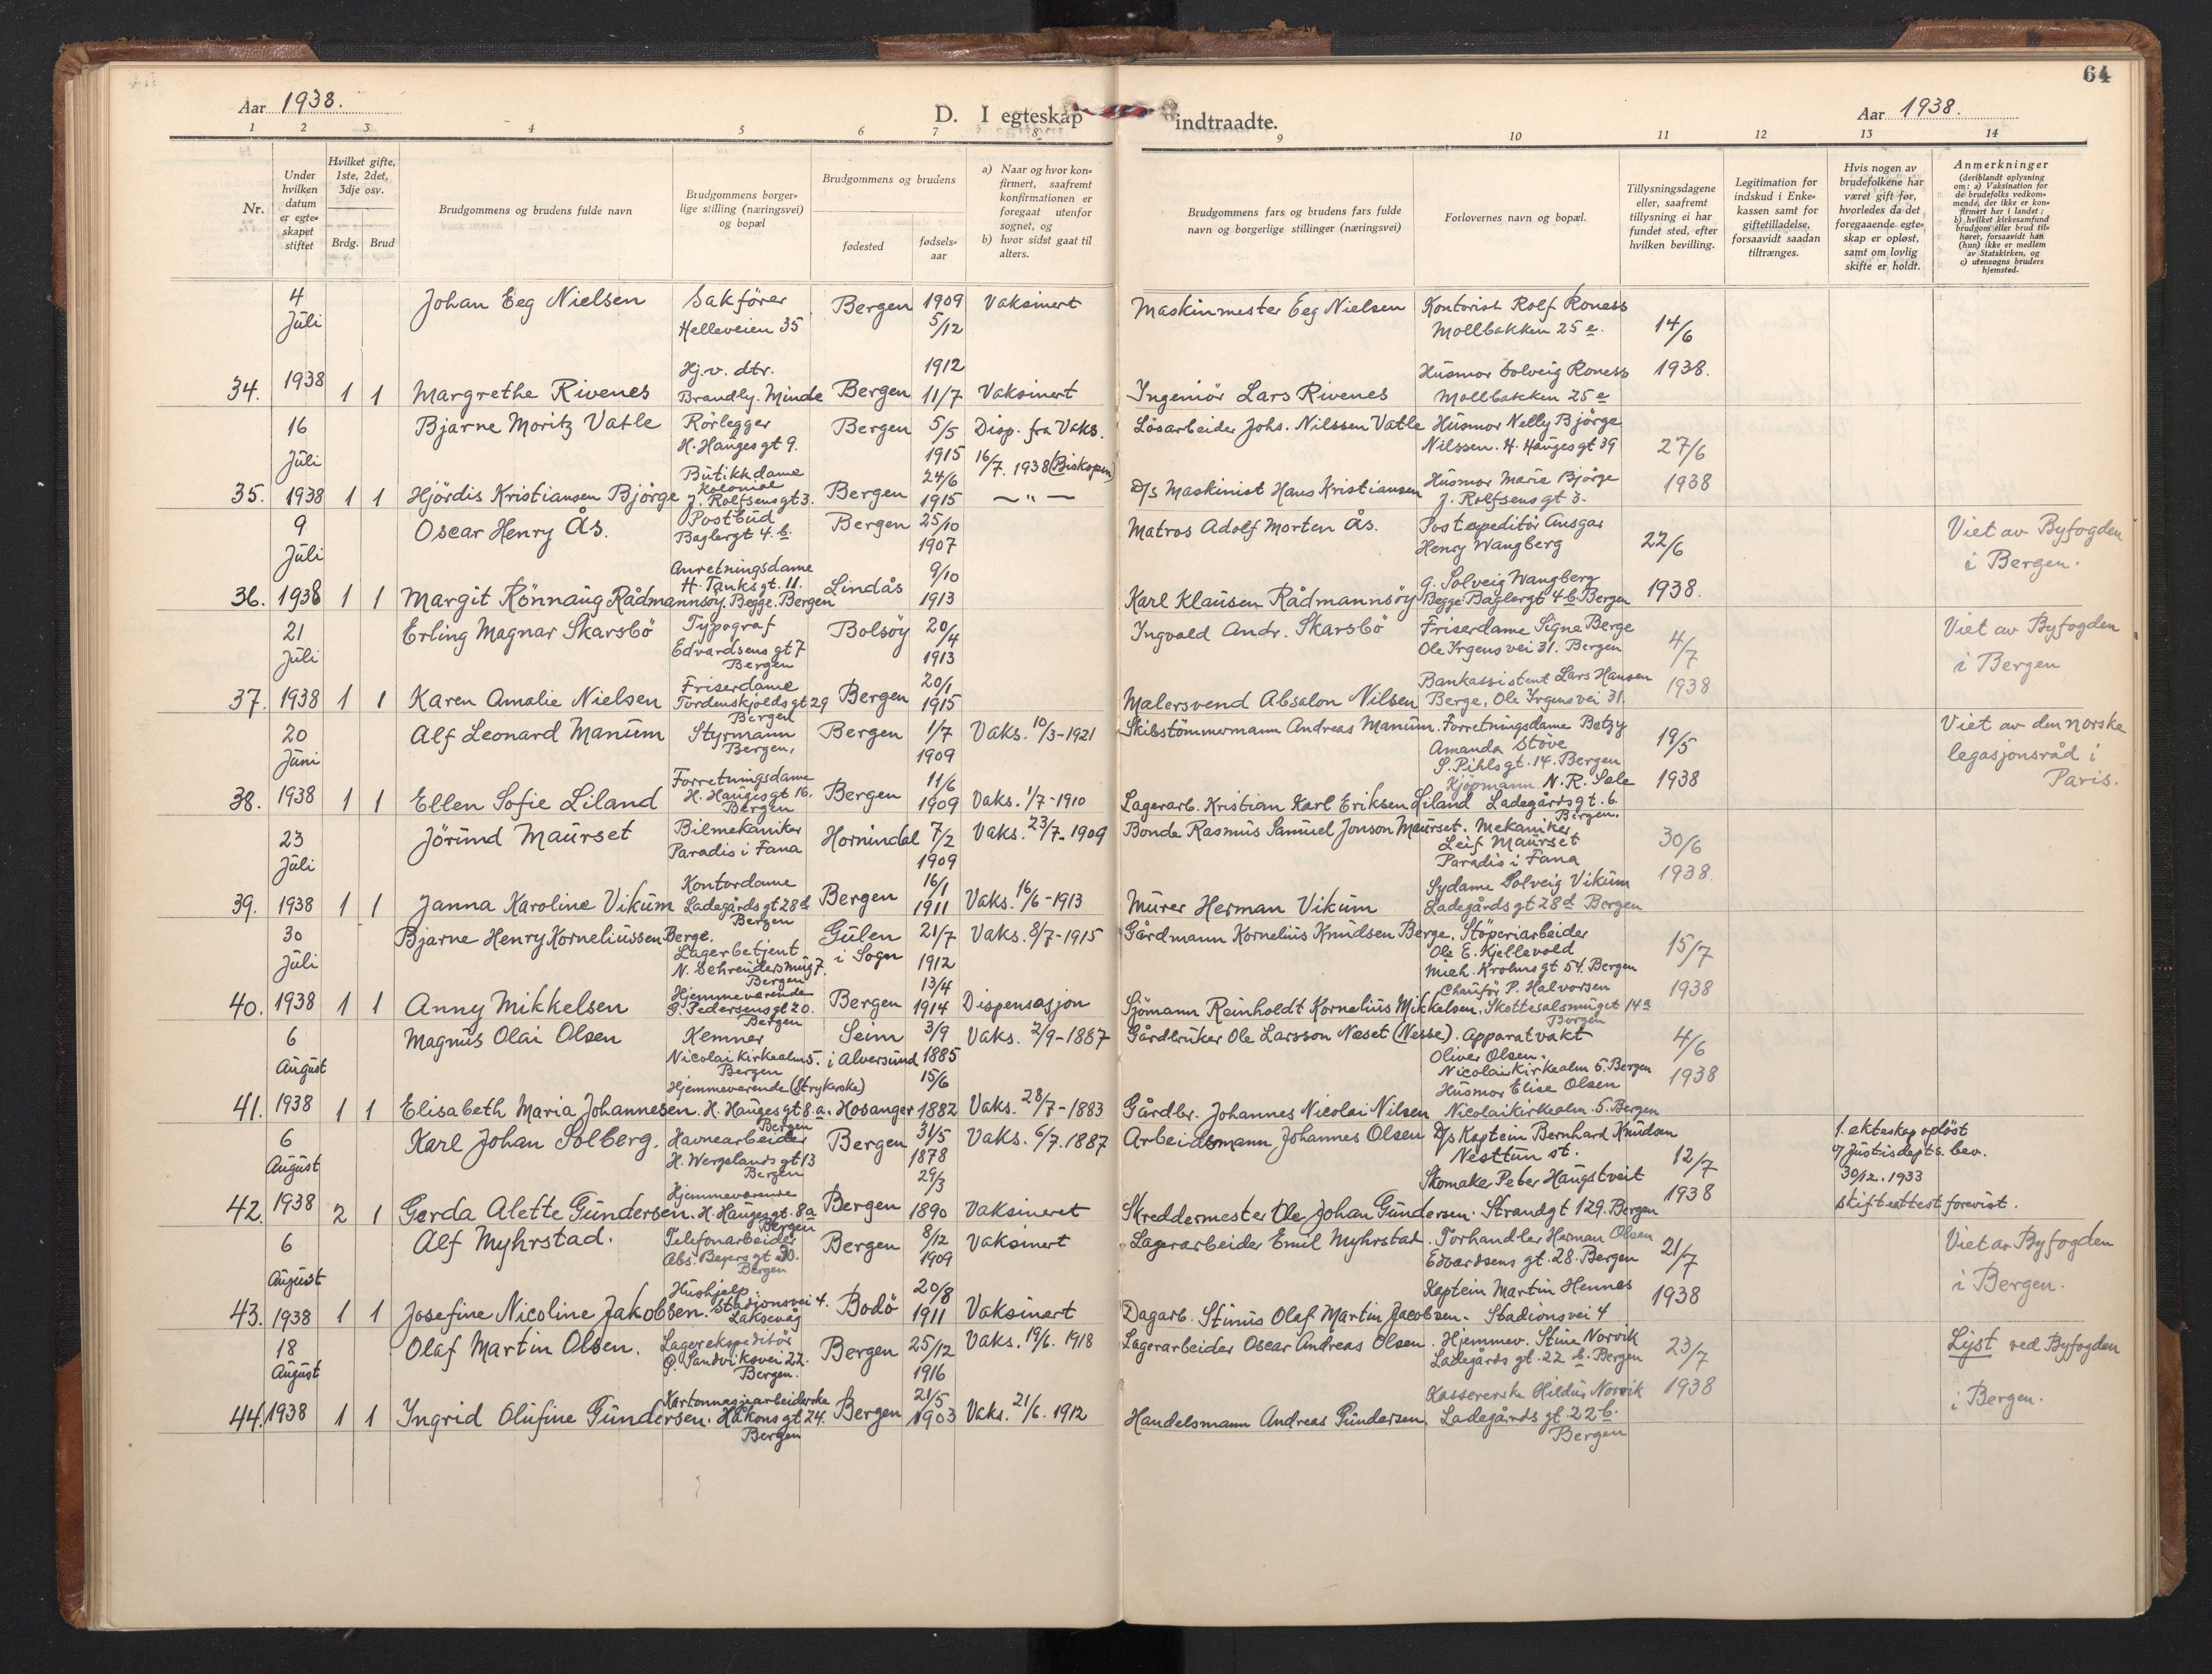 64
Aar 1938.
D. I egteskap indtraadte.
Aar 1938.
1 2 3 4 5 6 7 8 9 10 11 12 13 14
Nr.
Under hvilken datum er egteskapet stiftet
Hvilket gifte, 1ste, 2det, 3dje osv.
Brdg. Brud
Brudgommens og brudens fulde navn
Brudgommens borgerlige stilling (næringsvei) og bopæl
Brudgommens og brudens
fødested
fødselsaar
a) Naar og hvor konfirmert, saafremt konfirmationen er foregaat utenfor sognet, og
b) hvor sidst gaat til alters.
Brudgommens fars og brudens fars fulde navn og borgerlige stillinger (næringsvei)
Forlovernes navn og bopæl.
Tillysningsdagene eller, saafremt tillysning ei har fundet sted, efter hvilken bevilling.
Legitimation for indskud i Enkekassen samt for giftetilladelse, forsaavidt saadan tiltrænges.
Hvis nogen av brudefolkene har været gift før, hvorledes da det foregaaende egteskap er opløst, samt om lovlig skifte er holdt.
Anmerkninger (deriblandt oplysning om: a) Vaksination for de brudefolks vedkommende, der ikke er konfirmert her i landet; b) hvilket kirkesamfund brudgom eller brud tilhører, forsaavidt han (hun) ikke er medlem av Statskirken, og c) utensogns bruders hjemsted.
34. 4 Juli 1938 1 1
Johan Eeg Nielsen Sakfører Helleveien 35 Bergen 1909 5/12 Vaksinert
Maskinmester Eeg Nielsen Kontorist Rolf Roness Møllbakken 25 e. 14/6
Margrethe Rivenes Hj.v. dtr. Brandly. Minde Bergen 1912 11/7 Vaksinert
Ingeniør Lars Rivenes Husmor Solveig Roness Møllbakken 25 e 1938.
35. 16 Juli 1938 1 1
Bjarne Moritz Vatle Rørlegger H. Hauges gt 9. Bergen 5/5 1915 Disp. fra Vaks. 16/7. 1938 (Biskopen)
Løsarbeider Johs. Nilssen Vatle Husmor Nelly Bjørge Nilssen. H. Hauges gt 39 27/6
Hjördis Kristiansen Bjørge Butikkdame Kolonial J. Rolfsens gt 3. Bergen 24/6 1915 — " —
D/s Maskinist Hans Kristiansen Husmor Marie Bjørge J. Rolfsens gt 3. 1938
36. 9 Juli 1938 1 1
Oscar Henry Ås. Postbud Baglergt 4. b. Bergen 25/10 1907
Matros Adolf Morten Ås. Postexpeditør Ansgar Henry Wangberg 22/6
Viet av Byfogden i Bergen.
Margit Rönnaug Rådmannsøy. Anretningsdame H. Tanks gt. 11. Begge. Bergen Lindås 9/10 1913
Karl Klausen Rådmannsøy G. Solveig Wangberg Begge Baglergt 4 b. Bergen 1938.
37. 21 Juli 1938 1 1
Erling Magnar Skarsbö Typograf Edvardsens gt 7 Bergen Bolsøy 20/4 1913
Ingvald Andr. Skarsbö Friserdame Signe Berge Ole Irgens vei 31. Bergen 4/7
Viet av Byfogden i Bergen
Karen Amalie Nielsen Friserdame Tordenskjolds gt 29 Bergen Bergen 20/1 1915
Malersvend Absalon Nilsen Bankassistent Lars Hansen Berge, Ole Irgens vei 31. 1938
38. 20 Juni 1938 1 1
Alf Leonard Manum Styrmann Bergen. Bergen 1/7 1909 Vaks. 10/3-1921
Skibstömmermann Andreas Manum. Forretningsdame Betzy Amanda Støve S. Pihls gt. 14. Bergen 19/5
Viet av den norske legasjonsråd i Paris.
Ellen Sofie Liland Forretningsdame H. Hauges gt 16. Bergen Bergen 11/6 1909 Vaks. 1/7-1910
Lagerarb. Kristian Karl Eriksen Liland Kjøpmann N.R. Sele Ladegårdsgt. 6. Bergen. 1938
39. 23 Juli 1938 1 1
Jörund Maurset Bilmekaniker Paradis i Fana Hornindal 7/2 1909 Vaks. 23/7-1909
Bonde Rasmus Samuel Jonson Maurset. Mekaniker Leif Maurset Paradis i Fana 30/6
Janna Karoline Vikum Kontordame Ladegårds gt 28 d Bergen Bergen 16/1 1911 Vaks. 16/6-1913
Murer Herman Vikum Sydame Solveig Vikum Ladegårds gt 28 d Bergen 1938.
40. 30 Juli 1938 1 1
Bjarne Henry Korneliussen Berge. Lagerbetjent N. Schreudersmug 7. Bergen Gulen i Sogn 21/7 1912 Vaks. 8/7-1915
Gårdmann Kornelius Knudsen Berge. Støperiarbeider Ole E. Kjellevold Mich. Krohns gt 54. Bergen 15/7
Anny Mikkelsen Hjemmeværende G. Pedersens gt 20. Bergen Bergen 13/4 1914 Dispensasjon
Sjömann Reinholdt Kornelius Mikkelsen. Chauför P. Halvorsen Skottesalsmuget 14 a Bergen 1938
41. 6 August 1938 1 1
Magnus Olai Olsen Kemner Nicolai Kirkealm 5. Bergen Seim i Alversund 3/9 1885 Vaks. 2/9-1887
Gårdbruker Ole Larsson Næset (Nesse). Apparatvakt Oliver Olsen. Nicolai Kirkealm 5. Bergen 4/6
Elisabeth Maria Johannesen. Hjemmeværende (Strykerske) H. Hauges gt 8. a. Bergen Hosanger 15/6 1882 Vaks. 28/7-1883
Gårdbr. Johannes Nicolai Nilsen Husmor Elise Olsen Nicolaikirkealm. 5. Bergen 1938
42. 6 August 1938 2 1
Karl Johan Solberg. Havnearbeider H. Wergelands gt 13 Bergen Bergen 31/5 1878 Vaks. 6/7. 1887
Arbeidsmann Johannes Olsen D/s Kaptein Bernhard Knudsen Nesttun st. 12/7
1. ekteskap opløst v/ Justisdepts. bev. 30/12. 1933 skifteattest forevist.
Gerda Alette Gundersen. Hjemmeværende H. Hauges gt. 8 a Bergen Bergen 29/3 1890 Vaksineret
Skreddermester Ole Johan Gundersen. Skomaker Peter Haugstveit Strandgt 129. Bergen 1938
43. 6 August 1938 1 1
Alf Myhrstad. Telefonarbeider Abs. Beyers gt 30. Bergen Bergen 8/12 1909 Vaksinert
Lagerarbeider Emil Myhrstad. Torhandler Herman Olsen Edvardsens gt. 28. Bergen 21/7
Viet av Byfogden i Bergen.
Josefine Nicoline Jakobsen. Hushjelp. Stadionsvei 4. Laksevåg Bodö 20/8 1911 Vaksinert
Dagarb. Stinius Olaf Martin Jacobsen. Kaptein Martin Hennes Stadionsvei 4 1938
44. 18 August 1938 1 1
Olaf Martin Olsen. Lagerekspeditör Ø. Sandviksvei 22. Bergen. Bergen 25/12 1916 Vaks. 19/6. 1918
Lagerarbeider Oscar Andreas Olsen. Hjemmev. Stine Norvik Ladegårds gt. 22 b. Bergen 23/7
Lyst ved Byfogden i Bergen.
Ingrid Olufine Gundersen. Kartonnasjearbeiderske Håkons gt 24. Bergen Bergen 21/5 1903 Vaks. 21/6. 1912
Handelsmann Andreas Gundersen. Kassererske Hildur Norvik Ladegårds gt. 22 b. Bergen 1938